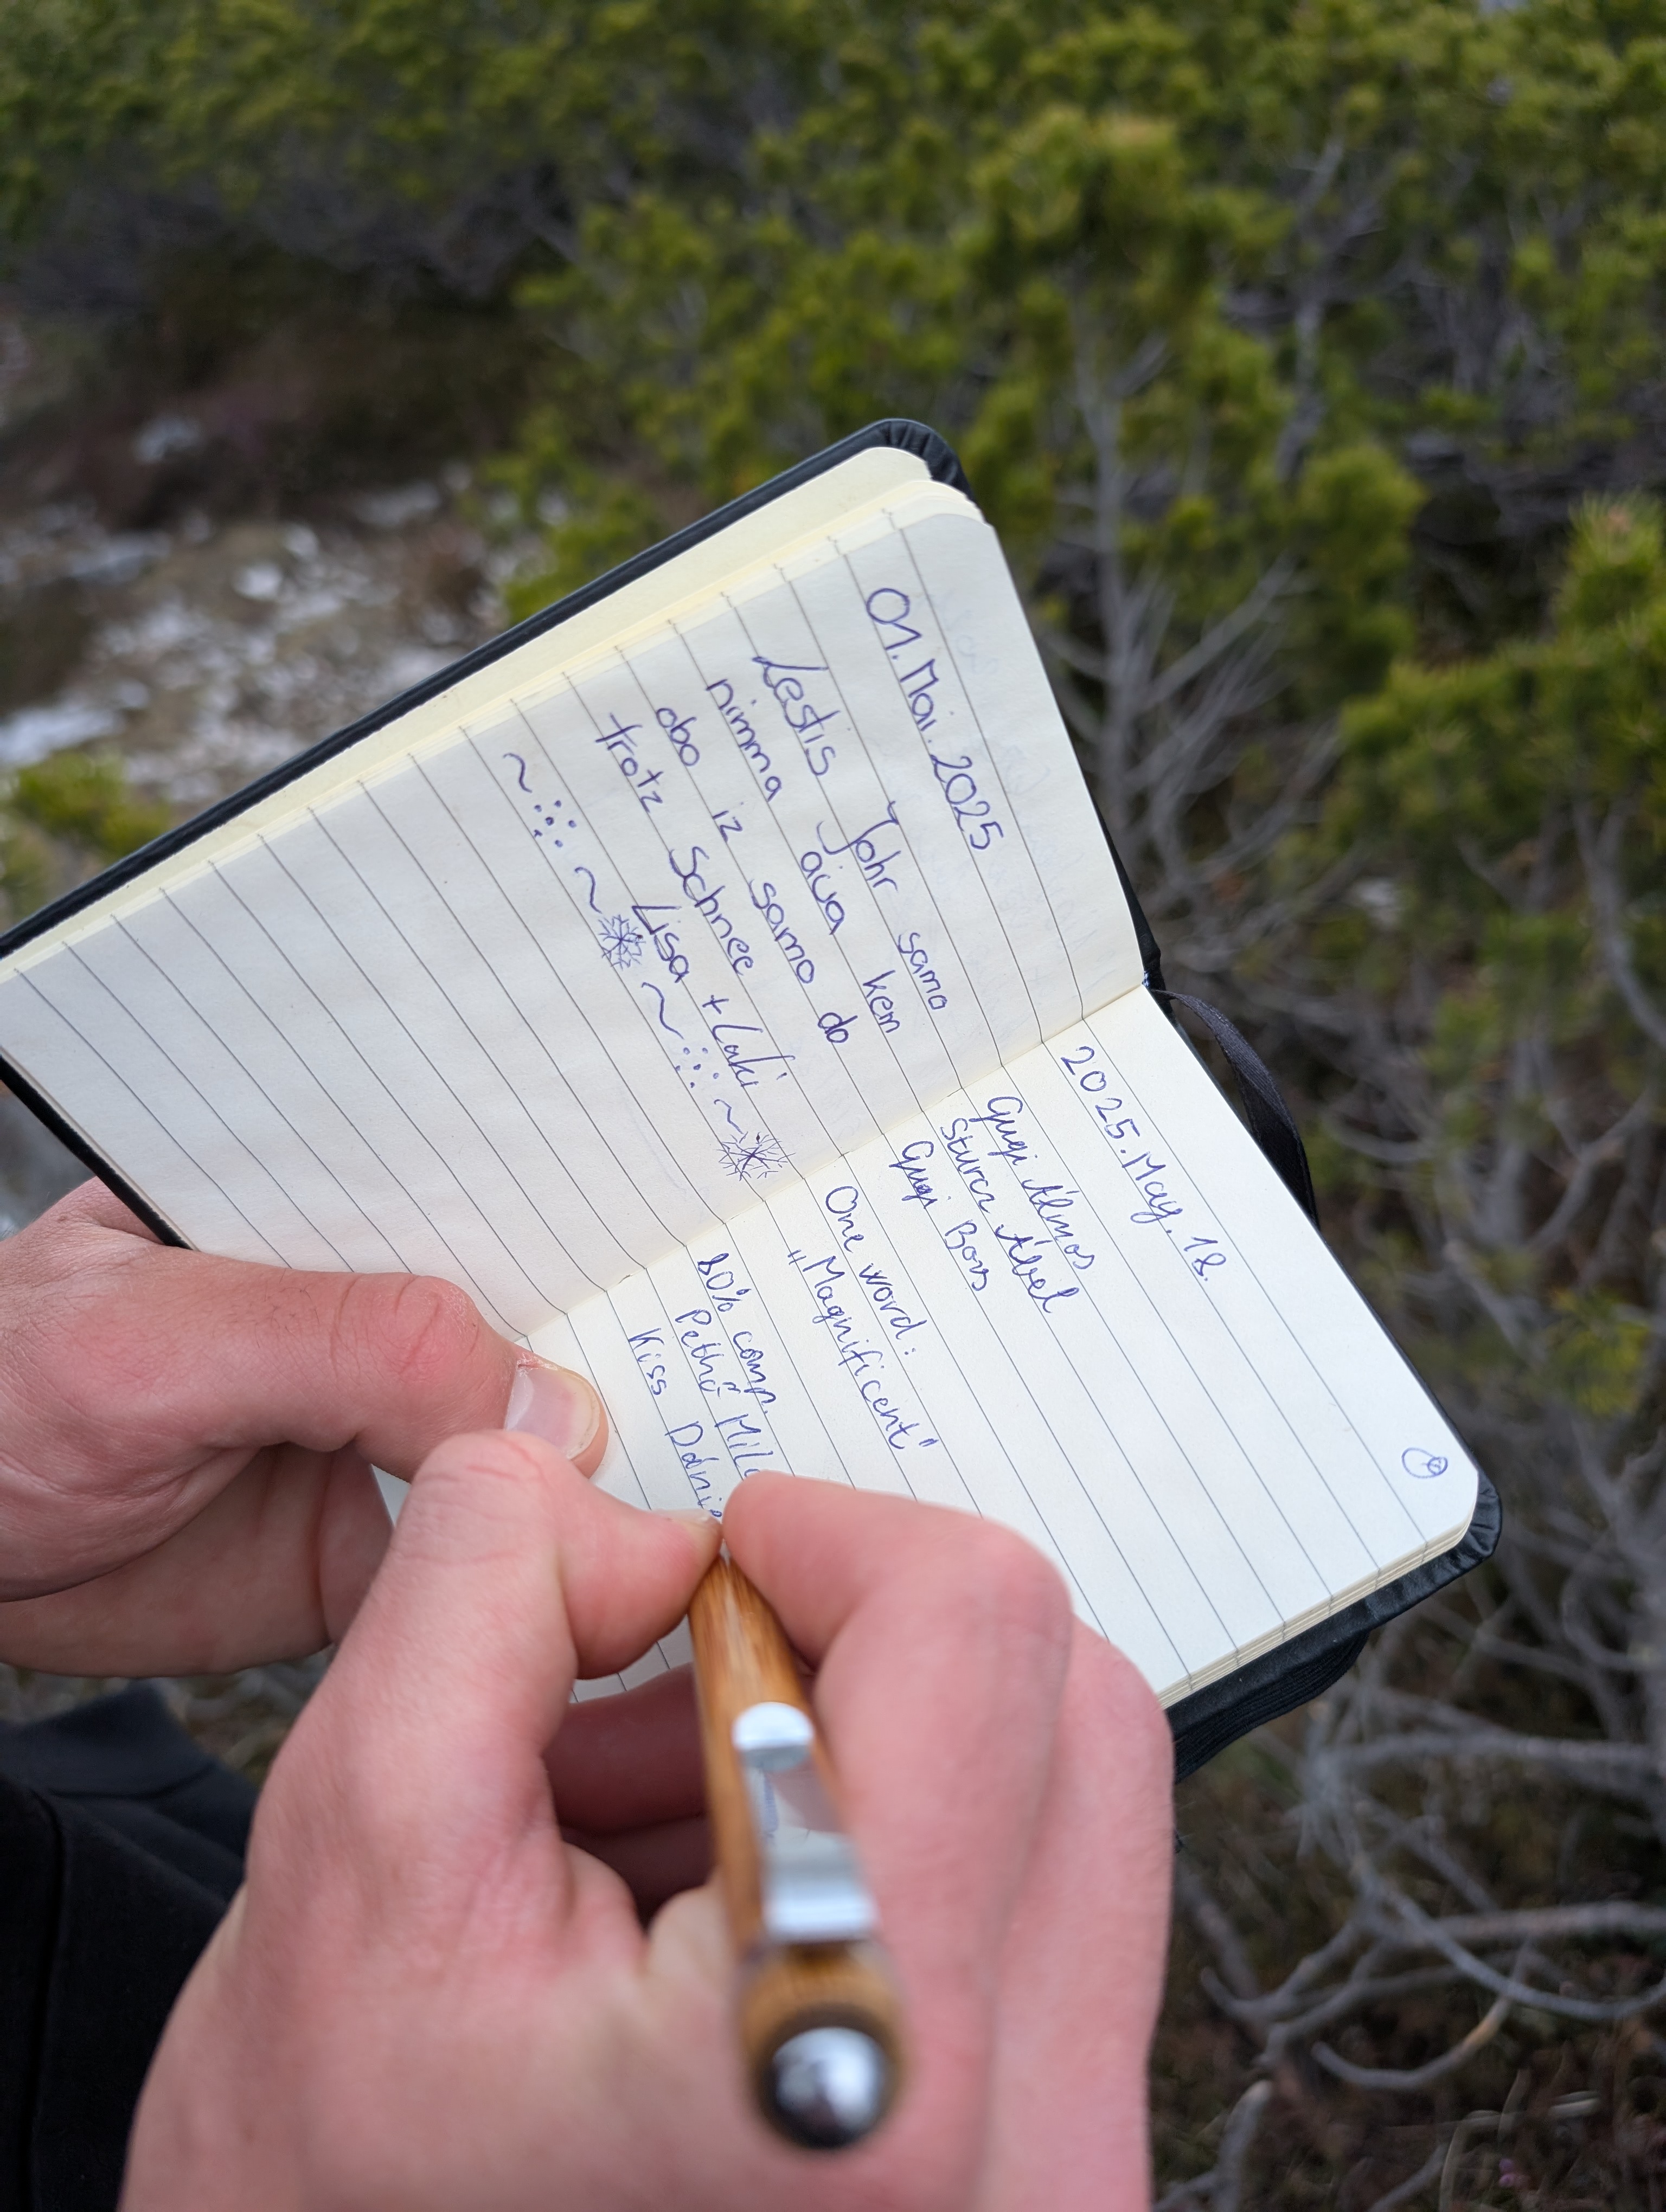 01. Mai. 2025
Lestis Johr samo
nimma aiva kem
obo iz samo do
trotz Schnee
Lisa + Luki
2025. May. 18.
Gugi Álmos
Sturcz Ábel
Gugi Bors
One word:
„Magnificent"
80% comp.
Pethő
Kiss